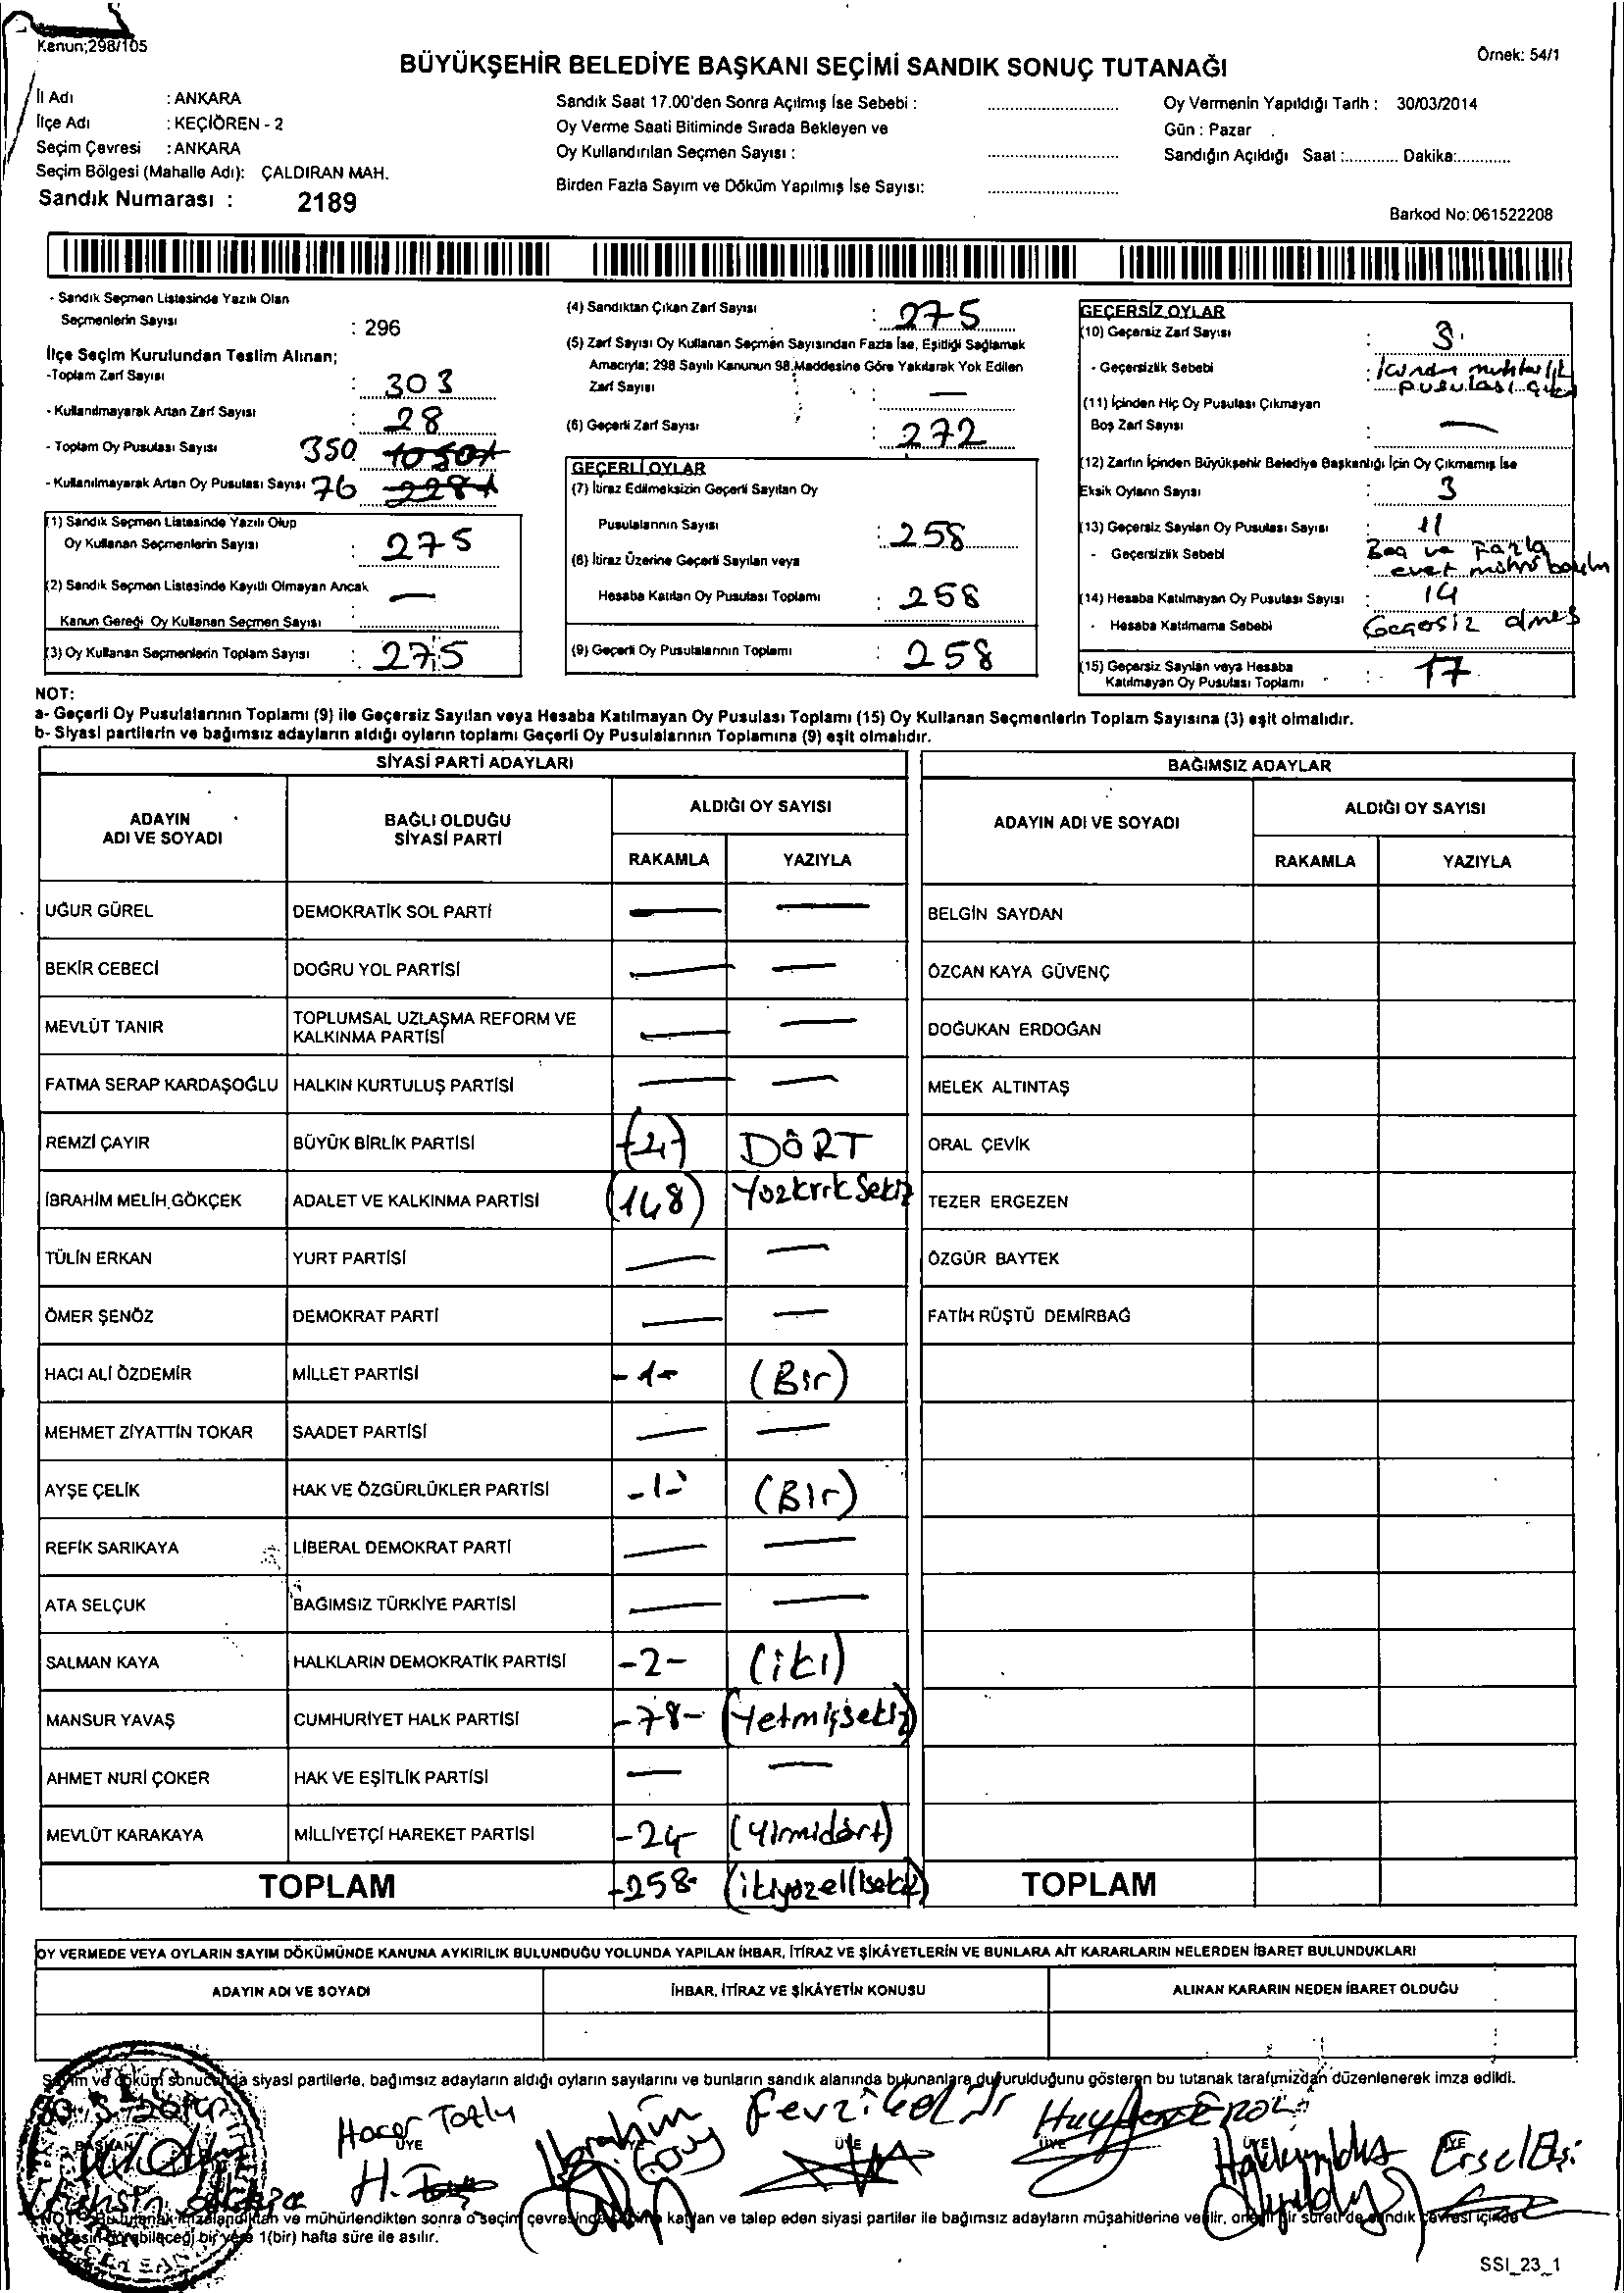 Kanun;298/105
Örnek: 54/1
BÜYÜKŞEHİR BELEDİYE BAŞKANI SEÇİMİ SANDIK SONUÇ TUTANAĞI
İl Adı : ANKARA
İlçe Adı : KEÇİÖREN - 2
Seçim Çevresi : ANKARA
Seçim Bölgesi (Mahalle Adı): ÇALDIRAN MAH.
Sandık Numarası : 2189
Sandık Saat 17.00'den Sonra Açılmış İse Sebebi :
Oy Verme Saati Bitiminde Sırada Bekleyen ve
Oy Kullandırılan Seçmen Sayısı :
Birden Fazla Sayım ve Döküm Yapılmış İse Sayısı:
Oy Vermenin Yapıldığı Tarih : 30/03/2014
Gün : Pazar
Sandığın Açıldığı Saat :............ Dakika:............
Barkod No: 061522208
- Sandık Seçmen Listesinde Yazılı Olan
Seçmenlerin Sayısı : 296
İlçe Seçim Kurulundan Teslim Alınan;
-Toplam Zarf Sayısı : 303
- Kullanılmayarak Artan Zarf Sayısı : 28
- Toplam Oy Pusulası Sayısı 350
- Kullanılmayarak Artan Oy Pusulası Sayısı 76
(1) Sandık Seçmen Listesinde Yazılı Olup
Oy Kullanan Seçmenlerin Sayısı : 275
(2) Sandık Seçmen Listesinde Kayıtlı Olmayan Ancak
Kanun Gereği Oy Kullanan Seçmen Sayısı : —
(3) Oy Kullanan Seçmenlerin Toplam Sayısı : 275
(4) Sandıktan Çıkan Zarf Sayısı : 275
(5) Zarf Sayısı Oy Kullanan Seçmen Sayısından Fazla İse, Eşitliği Sağlamak
Amacıyla; 298 Sayılı Kanunun 98.Maddesine Göre Yakılarak Yok Edilen
Zarf Sayısı : —
(6) Geçerli Zarf Sayısı : 272
GEÇERLİ OYLAR
(7) İtiraz Edilmeksizin Geçerli Sayılan Oy
Pusulalarının Sayısı : 258
(8) İtiraz Üzerine Geçerli Sayılan veya
Hesaba Katılan Oy Pusulası Toplamı : 258
(9) Geçerli Oy Pusulalarının Toplamı : 258
GEÇERSİZ OYLAR
(10) Geçersiz Zarf Sayısı : 3
- Geçersizlik Sebebi : içinden muhtarlık
pusulası çıktı
(11) İçinden Hiç Oy Pusulası Çıkmayan
Boş Zarf Sayısı : —
(12) Zarfın İçinden Büyükşehir Belediye Başkanlığı İçin Oy Çıkmamış İse
Eksik Oyların Sayısı : 3
(13) Geçersiz Sayılan Oy Pusulası Sayısı : 11
- Geçersizlik Sebebi : Boş ve Fazla
evet mührü
(14) Hesaba Katılmayan Oy Pusulası Sayısı : 14
- Hesaba Katılmama Sebebi Geçersiz
(15) Geçersiz Sayılan veya Hesaba
Katılmayan Oy Pusulası Toplamı : 17
NOT:
a- Geçerli Oy Pusulalarının Toplamı (9) ile Geçersiz Sayılan veya Hesaba Katılmayan Oy Pusulası Toplamı (15) Oy Kullanan Seçmenlerin Toplam Sayısına (3) eşit olmalıdır.
b- Siyasi partilerin ve bağımsız adayların aldığı oyların toplamı Geçerli Oy Pusulalarının Toplamına (9) eşit olmalıdır.
SİYASİ PARTİ ADAYLARI
ADAYIN ADI VE SOYADI BAĞLI OLDUĞU SİYASİ PARTİ ALDIĞI OY SAYISI
RAKAMLA YAZIYLA
UĞUR GÜREL DEMOKRATİK SOL PARTİ — —
BEKİR CEBECİ DOĞRU YOL PARTİSİ — —
MEVLÜT TANIR TOPLUMSAL UZLAŞMA REFORM VE KALKINMA PARTİSİ — —
FATMA SERAP KARDAŞOĞLU HALKIN KURTULUŞ PARTİSİ — —
REMZİ ÇAYIR BÜYÜK BİRLİK PARTİSİ (4) DÖRT
İBRAHİM MELİH GÖKÇEK ADALET VE KALKINMA PARTİSİ (148) Yüzkırk Sekiz
TÜLİN ERKAN YURT PARTİSİ — —
ÖMER ŞENÖZ DEMOKRAT PARTİ — —
HACI ALİ ÖZDEMİR MİLLET PARTİSİ -1- (Bir)
MEHMET ZİYATTİN TOKAR SAADET PARTİSİ — —
AYŞE ÇELİK HAK VE ÖZGÜRLÜKLER PARTİSİ -1- (BIr)
REFİK SARIKAYA LİBERAL DEMOKRAT PARTİ — —
ATA SELÇUK BAĞIMSIZ TÜRKİYE PARTİSİ — —
SALMAN KAYA HALKLARIN DEMOKRATİK PARTİSİ -2- (iki)
MANSUR YAVAŞ CUMHURİYET HALK PARTİSİ -78- (Yetmişsekiz)
AHMET NURİ ÇOKER HAK VE EŞİTLİK PARTİSİ — —
MEVLÜT KARAKAYA MİLLİYETÇİ HAREKET PARTİSİ -24- (Yirmidört)
TOPLAM -258- (ikiyüzellisekiz)
BAĞIMSIZ ADAYLAR
ADAYIN ADI VE SOYADI ALDIĞI OY SAYISI
RAKAMLA YAZIYLA
BELGİN SAYDAN
ÖZCAN KAYA GÜVENÇ
DOĞUKAN ERDOĞAN
MELEK ALTINTAŞ
ORAL ÇEVİK
TEZER ERGEZEN
ÖZGÜR BAYTEK
FATİH RÜŞTÜ DEMİRBAĞ
TOPLAM
OY VERMEDE VEYA OYLARIN SAYIM DÖKÜMÜNDE KANUNA AYKIRILIK BULUNDUĞU YOLUNDA YAPILAN İHBAR, İTİRAZ VE ŞİKÂYETLERİN VE BUNLARA AİT KARARLARIN NELERDEN İBARET BULUNDUKLARI
ADAYIN ADI VE SOYADI İHBAR, İTİRAZ VE ŞİKÂYETİN KONUSU ALINAN KARARIN NEDEN İBARET OLDUĞU
Sayım ve döküm sonucunda siyasi partilerle, bağımsız adayların aldığı oyların sayılarını ve bunların sandık alanında bulunanlara duyurulduğunu gösteren bu tutanak tarafımızdan düzenlenerek imza edildi.
BAŞKAN
Hacer
ÜYE ÜYE ÜYE ÜYE
İbrahim
Fevzi
Ersel
NOT: Bu tutanak imzalandıktan ve mühürlendikten sonra o seçim çevresinde katılan ve talep eden siyasi partiler ile bağımsız adayların müşahitlerine verilir, bir sureti de sandık çevresi içinde
herkesin görebileceği bir yere 1(bir) hafta süre ile asılır.
SSI_23_1